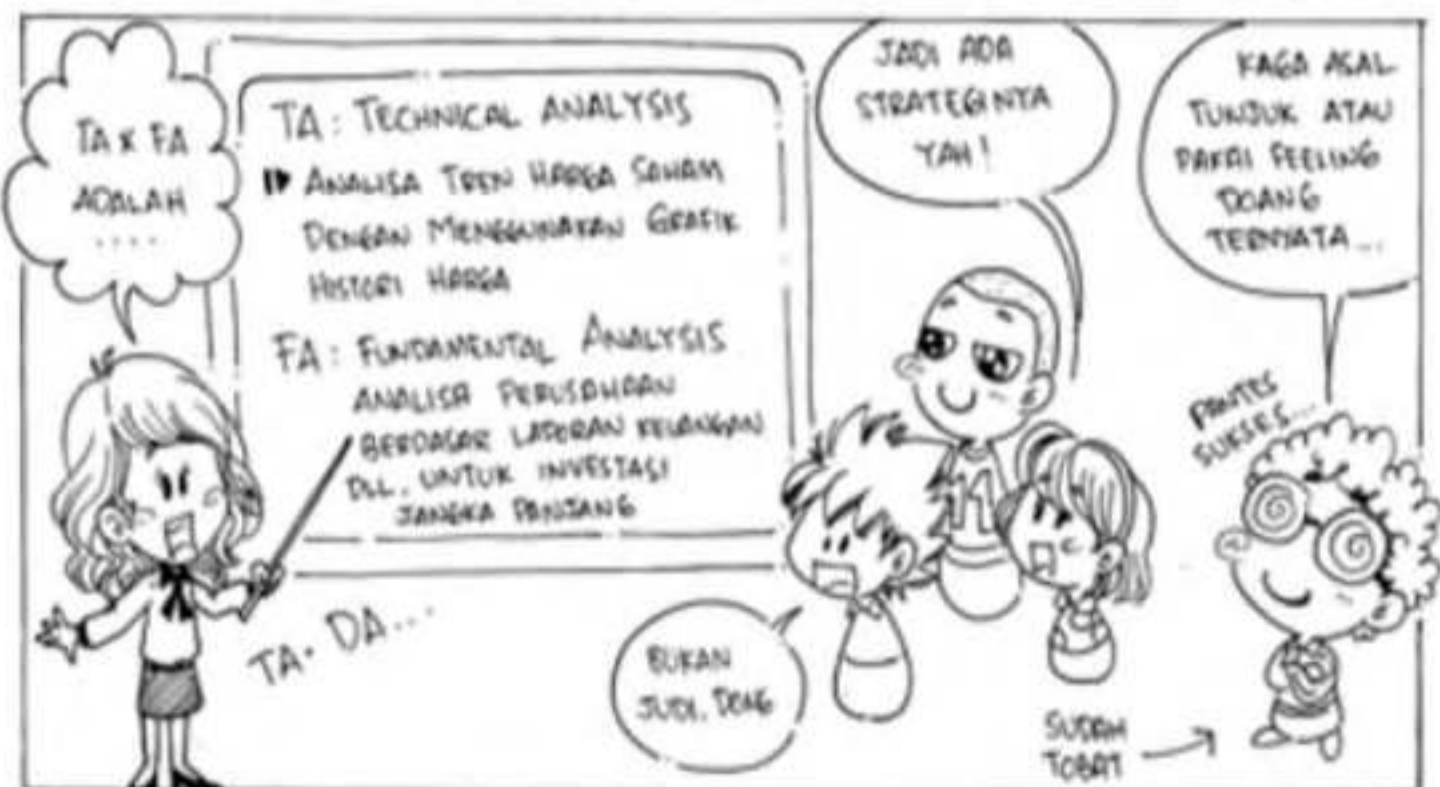 TA & FA
ADALAH
....
TA : TECHNICAL ANALYSIS
ANALISA TREN HARGA SAHAM
DENGAN MENGGUNAKAN GRAFIK
HISTORI HARGA
FA : FUNDAMENTAL ANALYSIS
ANALISA PERUSAHAAN
BERDASAR LAPORAN KEUANGAN
DLL. UNTUK INVESTASI
JANGKA PANJANG
TA-DA...
JADI ADA
STRATEGINYA
YAH!
BUKAN
JUDI, DONG
11
KAGA ASAL
TUNJUK ATAU
PAKAI FEELING
DOANG
TERNYATA...
PANTES
SUKSES...
SUDAH
TOBAT